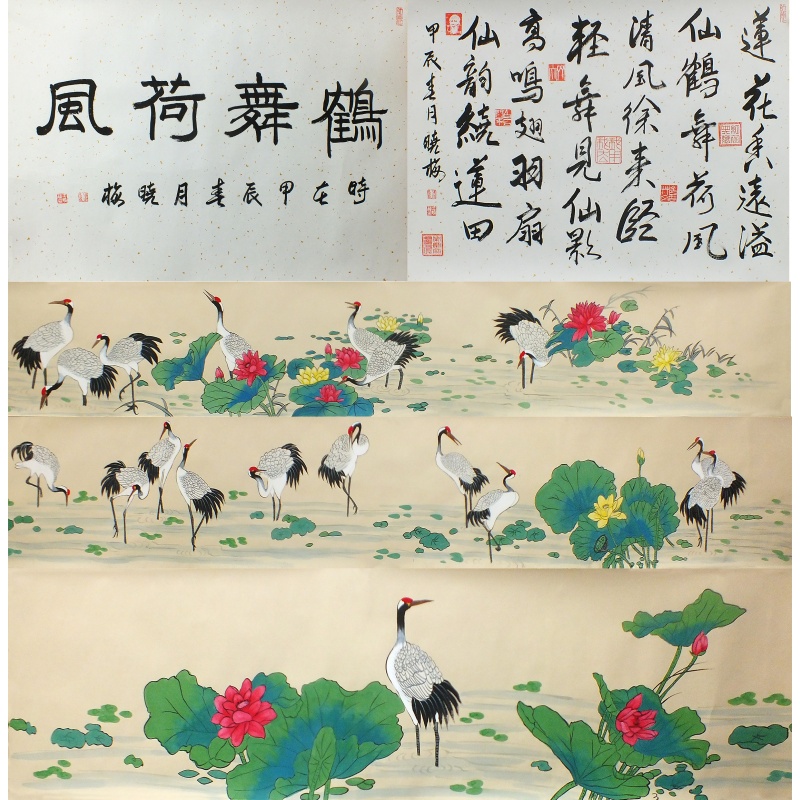 鶴舞荷風
時在甲辰春月曉梅
蓮花香遠溢
仙鶴舞荷风
清风徐来臨
輕舞見仙影
高鳴翅羽扇
仙韵繞蓮田
甲辰春月曉梅